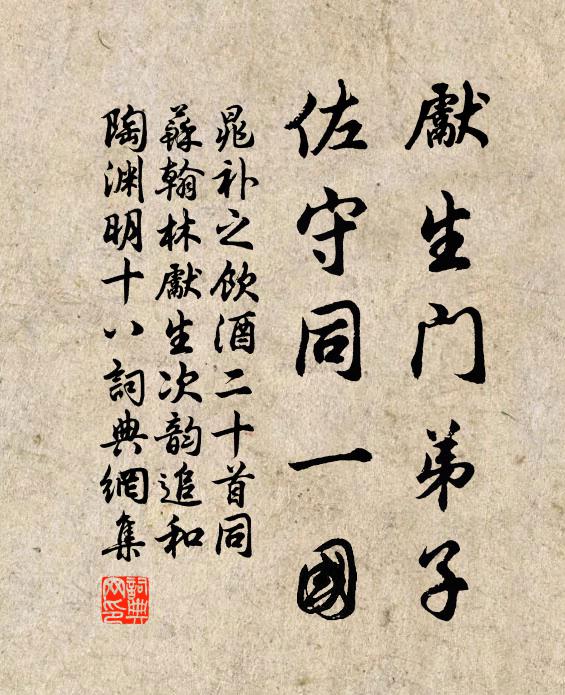 獻生門弟子
佐守同一國
晁补之飲酒二十首同
蘇翰林獻生次韵追和
陶渊明十八詞典網集
詞典网印